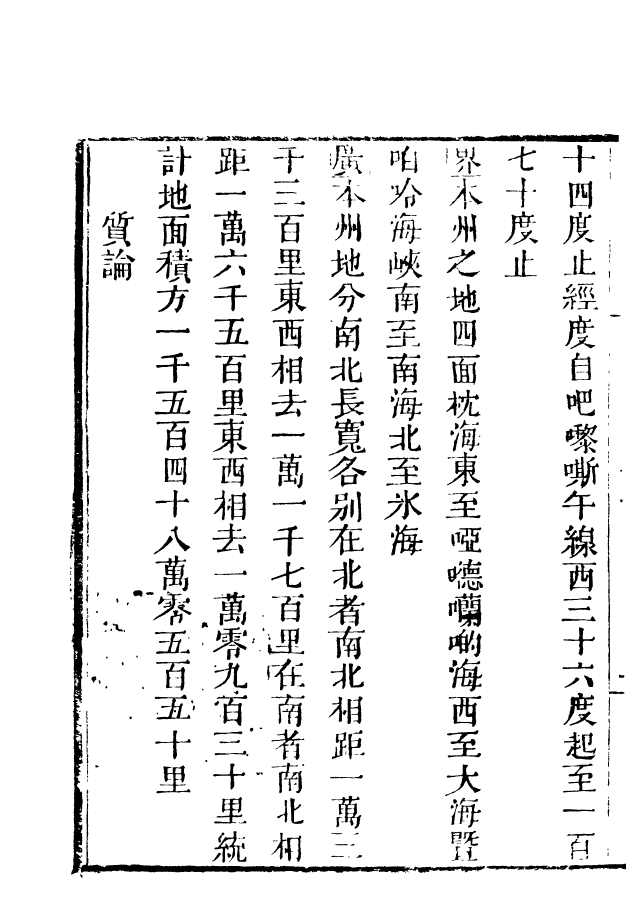 十四度止經度自吧嚟嘶午線西三十六度起至一百
七十度止
界本州之地四面枕海東至啞嘵囒啲海西至大海暨
咱哈海峽南至南海北至氷海
廣本州地分南北長寬各別在北者南北相距一萬三
千三百里東西相去一萬一千七百里在南者南北相
距一萬六千五百里東西相去一萬零九百三十里統
計地面積方一千五百四十八萬零五百五十里
質論